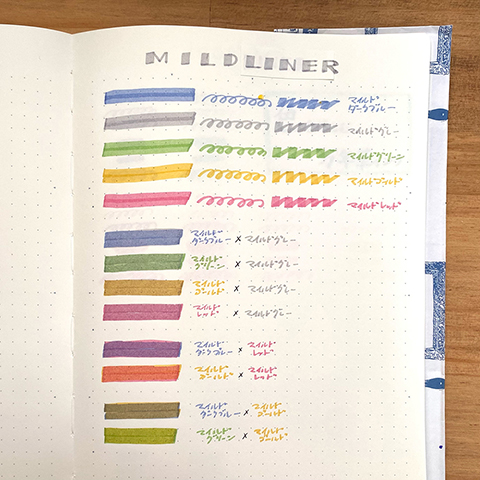 MILDLINER
マイルド
ダークブルー
マイルドグレー
マイルドグリーン
マイルドゴールド
マイルドレッド
マイルド
ダークブルー × マイルドグレー
マイルド
グリーン × マイルドグレー
マイルド
ゴールド × マイルドグレー
マイルド
レッド × マイルドグレー
マイルド マイルド
ダークブルー × レッド
マイルド マイルド
ゴールド × レッド
マイルド マイルド
ダークブルー × ゴールド
マイルド マイルド
グリーン × ゴールド